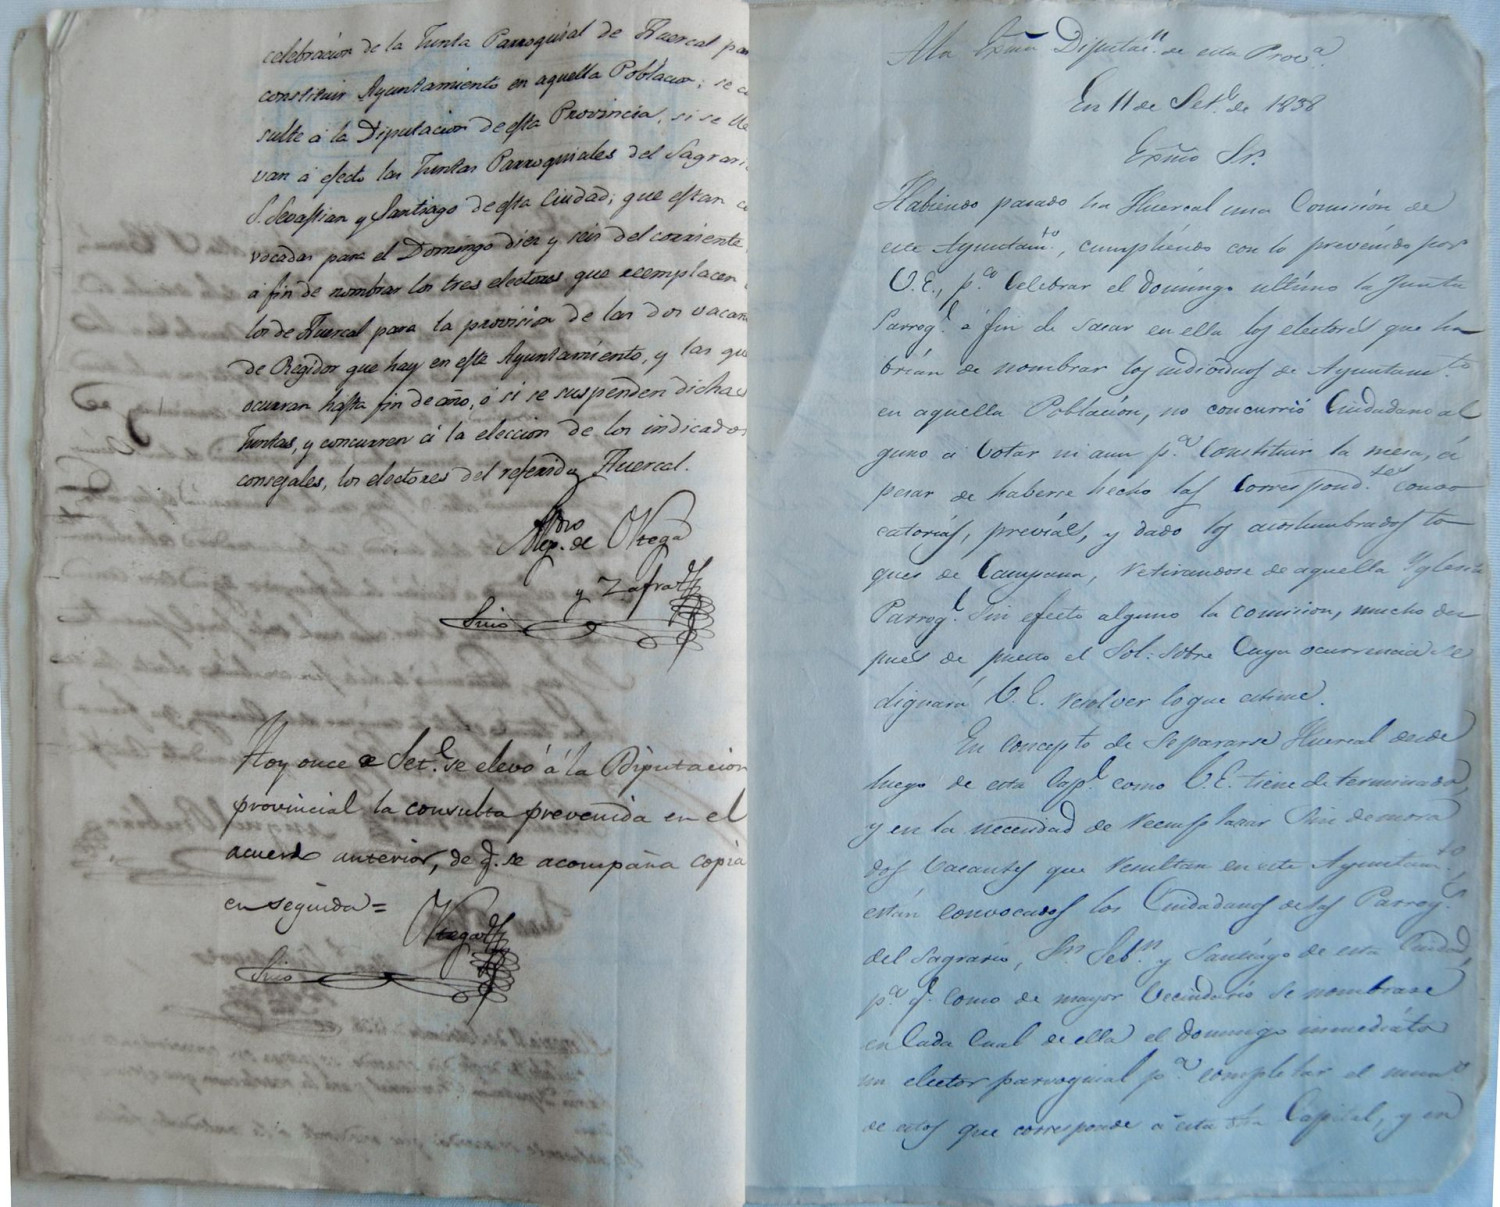 celebración de la Junta Parroquial de Huercal par
constituir Ayuntamiento en aquella Poblacion; se co
sulte á la Diputacion de esta Provincia, si se lle
van á efecto las Juntas Parroquiales del Sagrari
S. Sevastian y Santiago de esta Ciudad; que estan co
vocadas para el Domingo diez y seis del corriente
á fin de nombrar los tres electores que reemplacen
los de Huercal para la provision de las dos vacan
de Regidor que hay en este Ayuntamiento, y las qu
ocurran hasta fin de año, ó si se suspenden dichas
Juntas, y concurren á la eleccion de los indicados
consejales, los electores del referido Huercal.
de Ortega
y Zafra
Hoy once de Set.e se elevó á la Diputacion
provincial la consulta prevenida en el
acuerdo anterior, de q. se acompaña copia
en seguida=
Ortega
A la Exma Diputac.n de esta Prov.a
En 11 de Set.e de 1838
Exmo Sr.
Habiendo pasado ha Huercal una Comisión de
este Ayuntam.to, cumpliendo con lo prevenido por
V.E., p.a Celebrar el domingo ultimo la Junta
Parroq.l á fin de sacar en ella los electores que ha
brian de nombrar los individuos de Ayuntam.to
en aquella Población, no concurrió Ciudadano al
guno á Votar ni aun p.a Constituir la mesa, á
pesar de haberse hecho las Correspond.tes convo
catorias, previas, y dado los acostumbrados to
ques de Campana, retirandose de aquella Yglesia
Parroq.l Sin efecto alguno la comision, mucho des
pues de puesto el Sol: sobre Cuya ocurrencia se
dignará V.E. resolver lo que estime.
En concepto de Separarse Huercal desde
luego de esta Cap.l como V.E. tiene determinado,
y en la necesidad de reemplazar Sin demora
dos Vacantes que resultan en este Ayuntam.to
están convocados los Ciudadanos de las Parroq.s
del Sagrario, Sn. Seb.n y Santiago de esta Ciudad,
p.a q. como de mayor Vecindario se nombrase
en Cada Cual de ella el domingo inmediato
un elector parroquial p.a completar el num.o
de estos que corresponde á esta Capital, y en